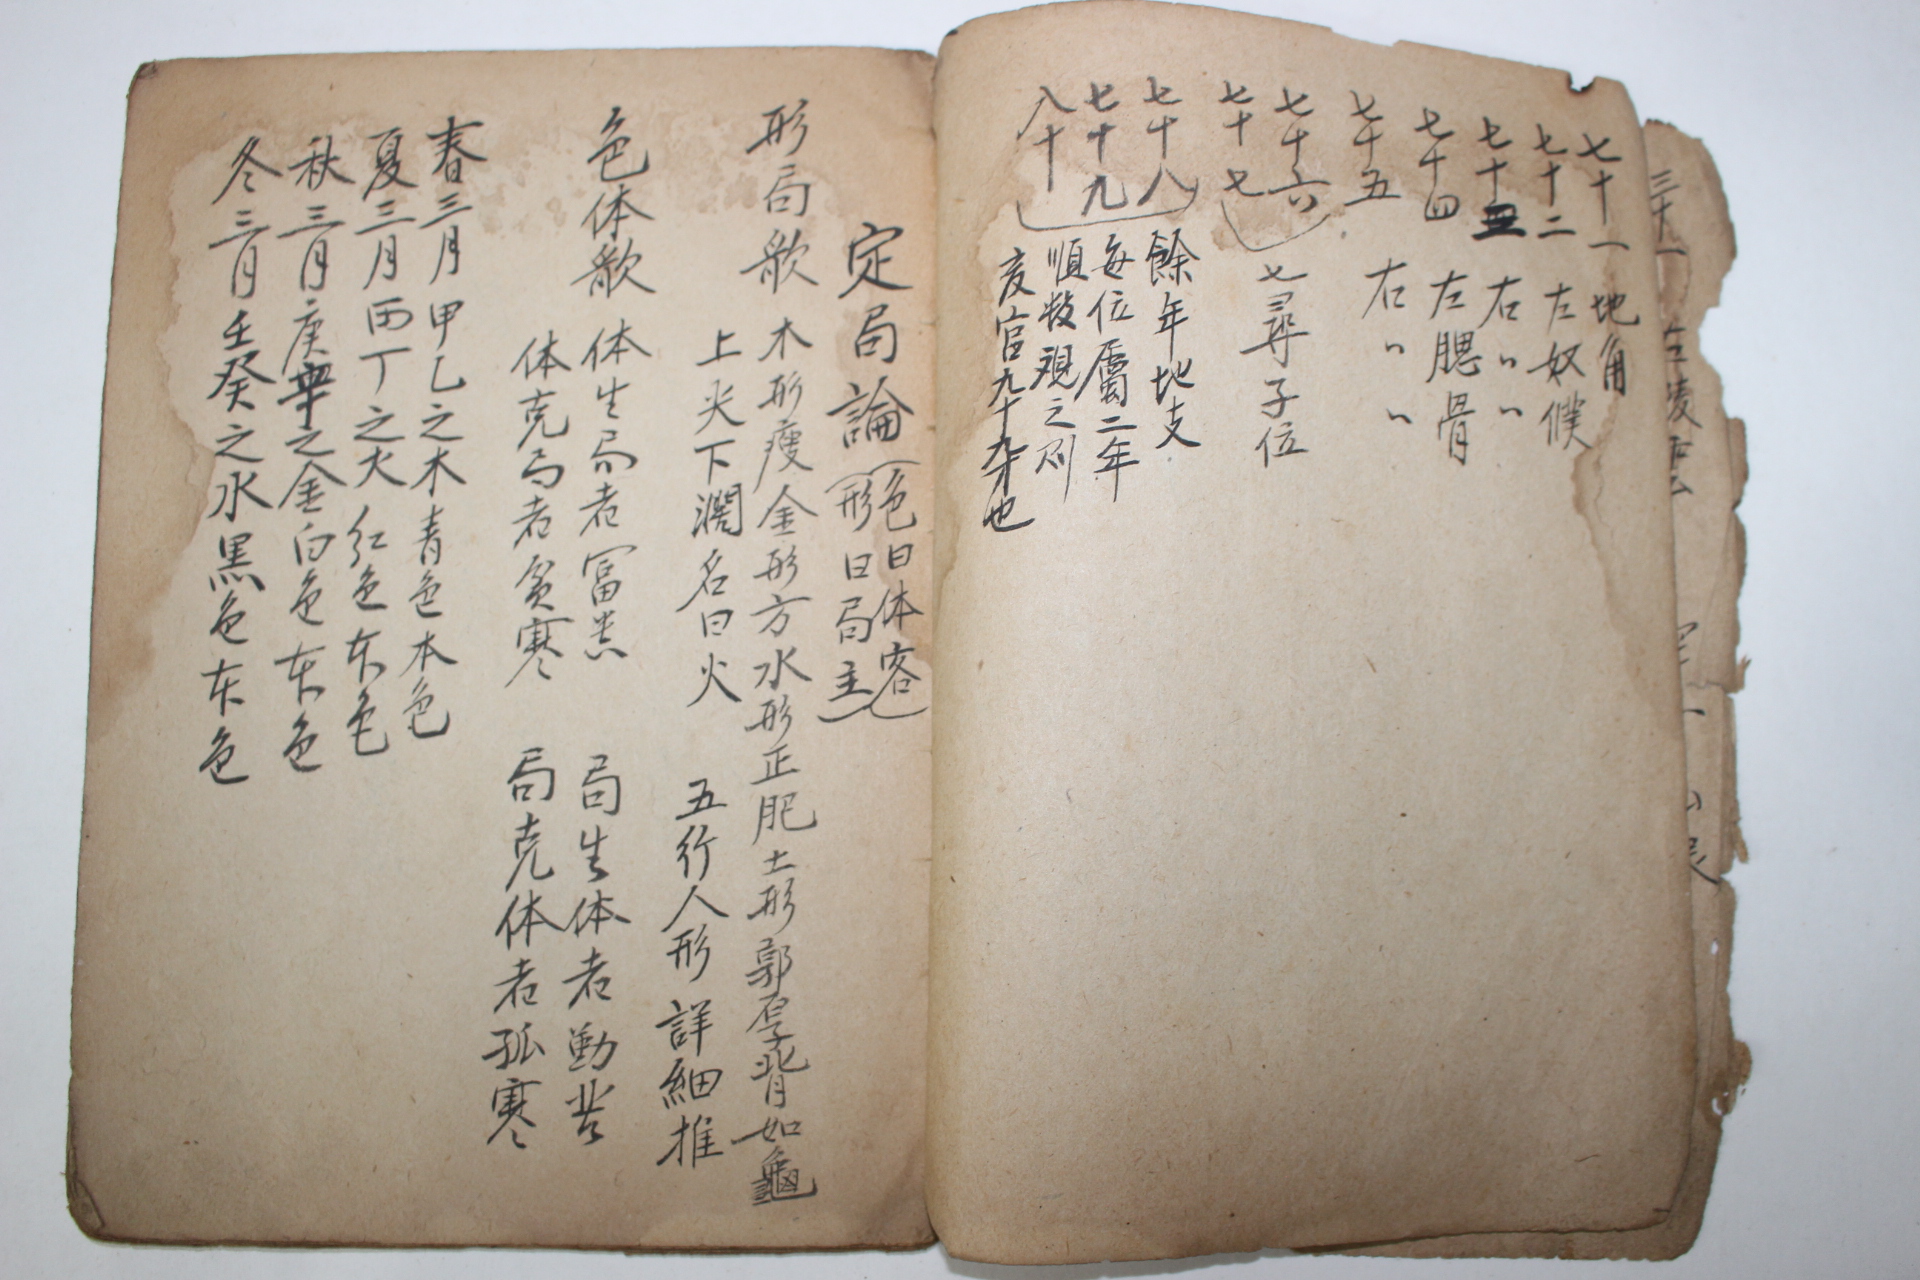 七十一 地角
七十二 左奴僕
七十三 右〃〃
七十四 左腮骨
七十五 右〃〃
七十六
七十七 七尋子位
七十八 餘年地支
七十九 每位屬二年
八十 順数視之則
亥宮九十九才也
定局論 色曰体客
形曰局主
形局歌 木形瘦金形方水形正肥土形郭厚背如龜
上尖下濶名曰火 五行人形詳細推
色体歌 体生局者冨贵 局生体者勤苦
体克局者貧寒 局克体者孤寒
春三月甲乙之木青色本色
夏三月丙丁之火红色本色
秋三月庚辛之金白色本色
冬三月壬癸之水黑色本色
三十一 左陵